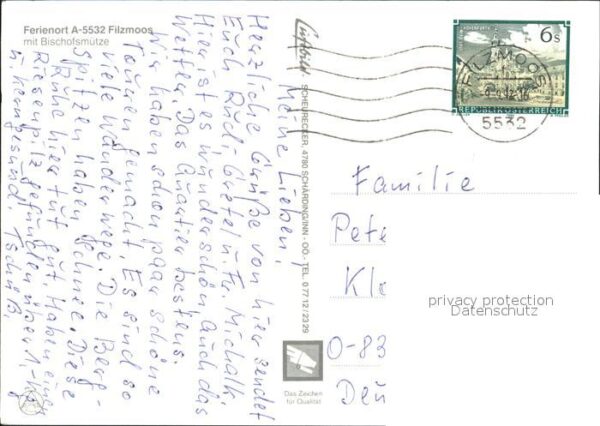 Ferienort A-5532 Filzmoos
mit Bischofsmütze
Meine Lieben!
Herzliche Grüße von hier sendet
Euch Rudi Gretel u. Fr. Michalk.
Hier ist es wunderschön auch das
Wetter. Das Quartier bestens.
Wir haben schon paar schöne
Touren gemacht. Es sind so
viele Wanderwege. Die Berg-
spitzen haben Schnee. Diese
Ruhe hier tut gut. Haben einen
Riesenpilz gefunden
u. kerngesund. Tschüß.
Luftbild SCHEURECKER, 4780 SCHÄRDING/INN - OÖ - TEL. 0 77 12 / 23 29
Das Zeichen
für Qualität
6 S
REPUBLIK ÖSTERREICH
FILZMOOS
5532
Familie
Pete
Kl
O-83
Deu
privacy protection
Datenschutz